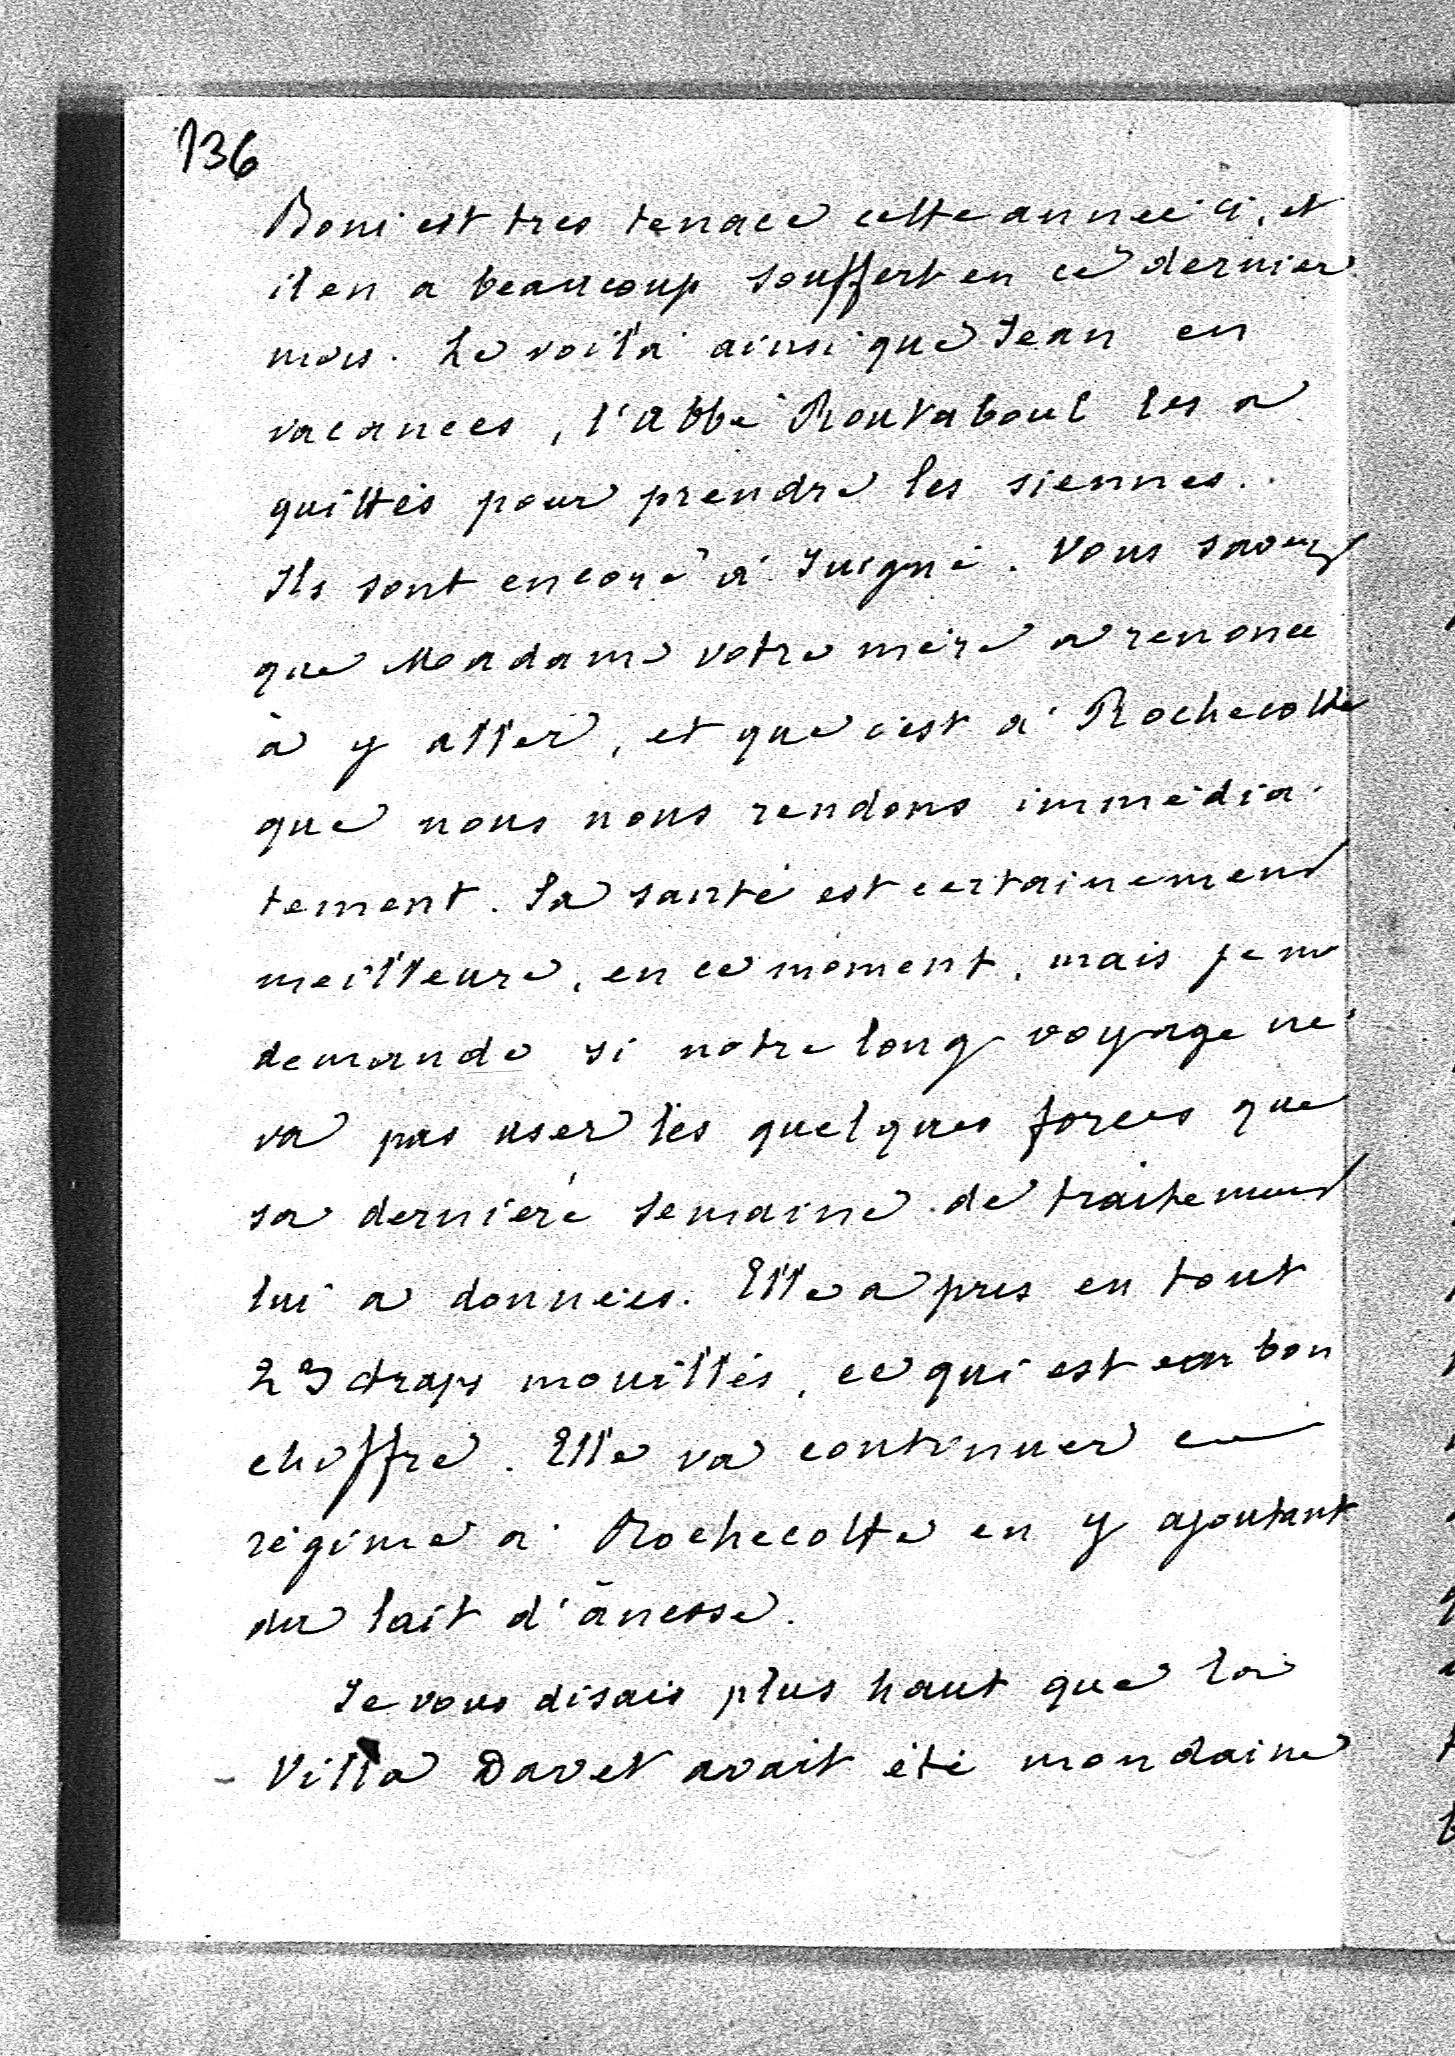 136
Boni est très tenace cette année ci, et
il en a beaucoup souffert en ce dernier
mois. Le voilà ainsi que Jean en
vacances, l'Abbé Routaboul les a
quittés pour prendre les siennes.
Ils sont encore à Juigné. Vous savez
que Madame votre mère a renoncé
à y aller, et que c'est à Rochecotte
que nous nous rendons immédia-
tement. Sa santé est certainement
meilleure, en ce moment, mais je me
demande si notre long voyage ne
va pas user les quelques forces que
sa dernière semaine de traitement
lui a données. Elle a pris en tout
23 draps mouillés, ce qui est un bon
chiffre. Elle va continuer ce
régime à Rochecotte en y ajoutant
du lait d'ânesse.
Je vous disais plus haut que la
Villa Davet avait été mondaine